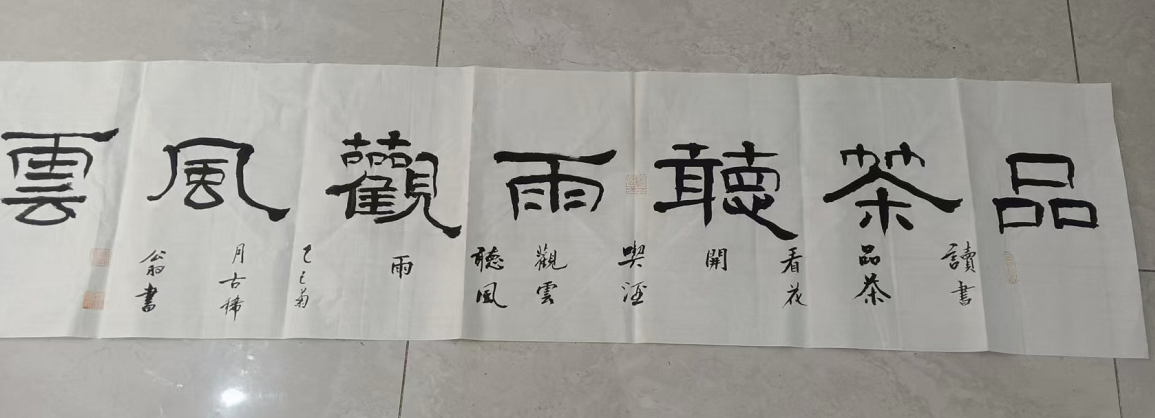 品茶聽雨觀風雲
讀書
品茶
看花
開
喫酒
觀雲
聽風
雨
乙巳菊
月古稀
翁書